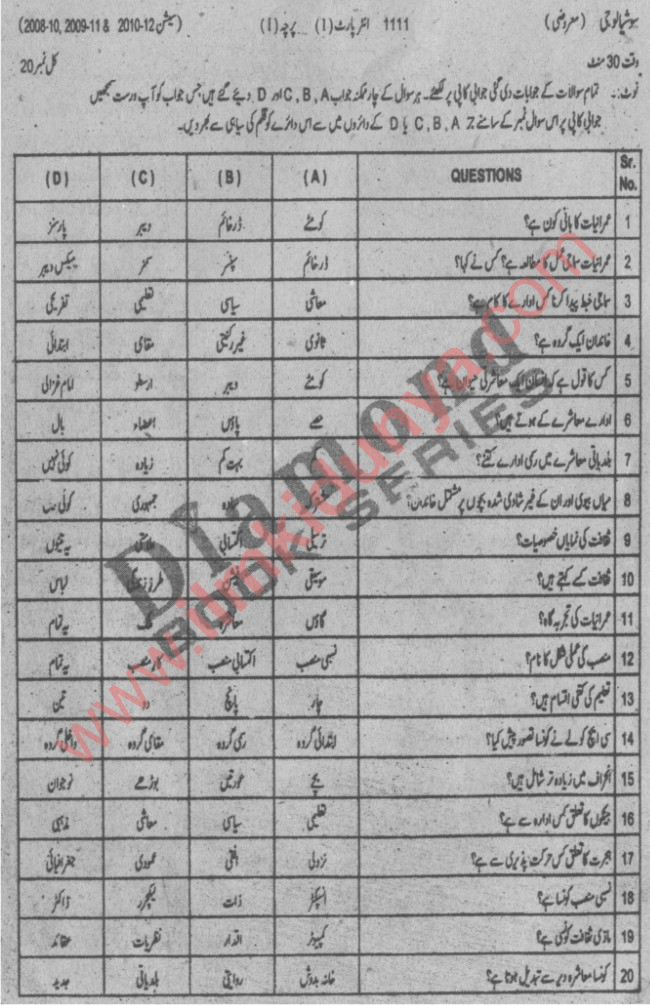 سوشیالوجی (معروضی) 1111 انٹر پارٹ (I) پرچہ (I) (سیشن 2010-12 & 2009-11 ,2008-10)
وقت 30 منٹ کل نمبر 20
نوٹ:۔ تمام سوالات کے جوابات دی گئی جوابی کاپی پر لکھئے۔ ہر سوال کے چار ممکنہ جواب C, B, A اور D دیئے گئے ہیں جس جواب کو آپ درست سمجھیں
جوابی کاپی پر اس سوال نمبر کے سامنے C, B, A یا D کے دائروں میں سے اس دائرے کو قلم کی سیاہی سے بھر دیں۔
Sr. No. QUESTIONS (A) (B) (C) (D)
1 عمرانیات کا بانی کون ہے؟ کومٹے ڈرخائم ویبر پارسنز
2 عمرانیات سماجی عمل کا مطالعہ ہے؟ کس نے کہا؟ ڈرخائم سپنسر سمنر میکس ویبر
3 سماجی ضبط پیدا کرنا کس ادارے کا کام ہے؟ معاشی سیاسی تعلیمی تفریحی
4 خاندان ایک گروہ ہے؟ ثانوی غیر رکنیتی مقامی ابتدائی
5 کس کا قول ہے کہ انسان ایک معاشرتی حیوان ہے؟ کومٹے ویبر ارسطو امام غزالی
6 ادارے معاشرے کے ہوتے ہیں؟ حصے پاؤں اعضاء بال
7 بلدیاتی معاشرے میں رسمی ادارے کتنے؟ کم بہت کم زیادہ کوئی نہیں
8 میاں بیوی اور ان کے غیر شادی شدہ بچوں پر مشتمل خاندان؟ سادہ جمہوری
9 ثقافت کی نمایاں خصوصیات؟ ترسیلی اکتسابی علامتی یہ تینوں
10 ثقافت کسے کہتے ہیں؟ موسیقی فیشن طرز زندگی لباس
11 عمرانیات کی تجربہ گاہ؟ گاؤں معاشرہ ملک یہ تمام
12 منصب کی عملی شکل کا نام؟ نسبی منصب اکتسابی منصب کار منصب یہ تمام
13 تعلیم کی کتنی اقسام ہیں؟ چار پانچ دو تین
14 سی ایچ کولے نے کونسا تصور پیش کیا؟ ابتدائی گروہ رسمی گروہ مقامی گروہ داخلی گروہ
15 انحراف میں زیادہ تر شامل ہیں؟ بچے عورتیں بوڑھے نوجوان
16 بینکوں کا تعلق کس ادارہ سے ہے؟ تعلیمی سیاسی معاشی مذہبی
17 ہجرت کا تعلق کس حرکت پذیری سے ہے؟ نزولی افقی عمودی جغرافیائی
18 نسبی منصب کونسا ہے؟ انسپکٹر ذات لیکچرر ڈاکٹر
19 مادی ثقافت کونسی ہے؟ کمپیوٹر اقدار نظریات عقائد
20 کونسا معاشرہ دیر سے تبدیل ہوتا ہے؟ خانہ بدوش روایتی بلدیاتی جدید
Diamond
BOOK SERIES
www.ilmkidunya.com